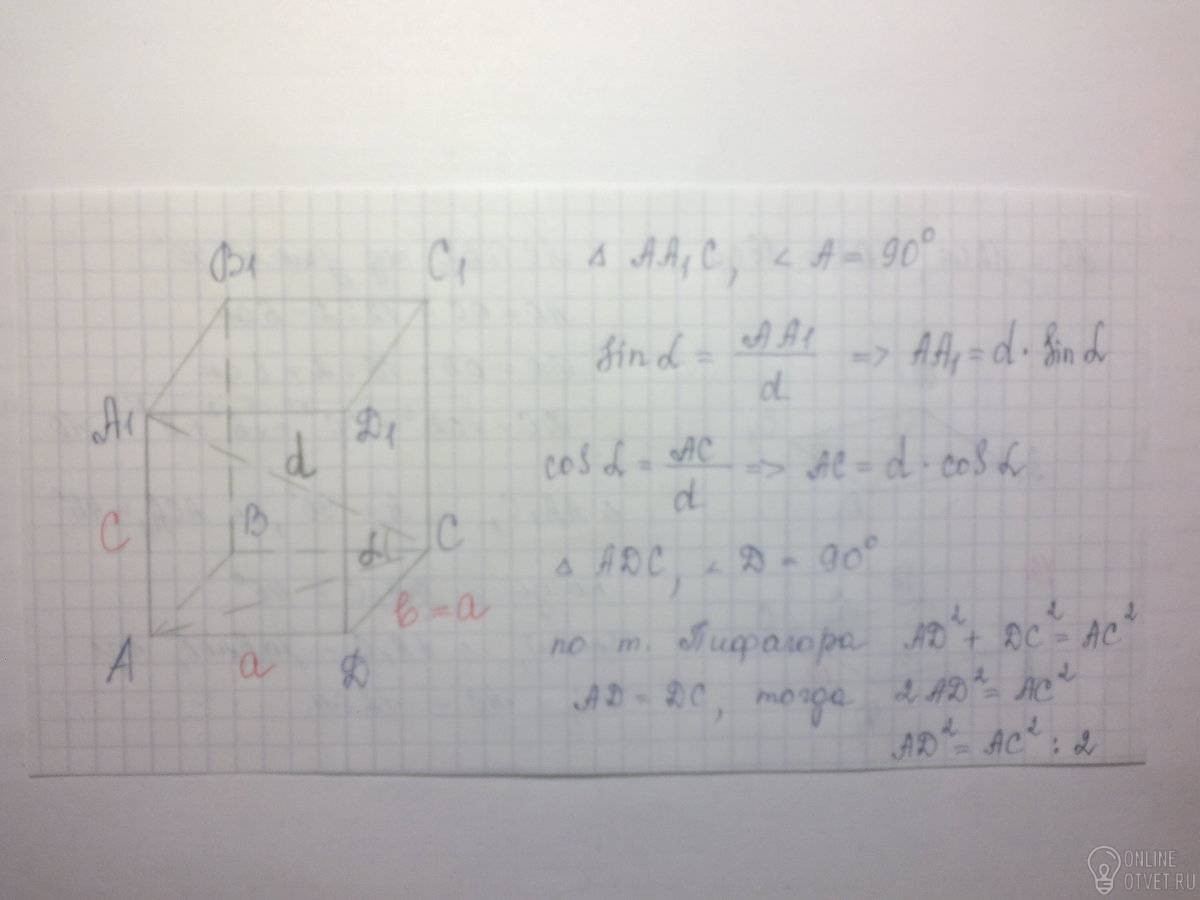 B1 C1
A1 D1
d
C B α C
в = a
A a D
Δ AA₁C, < A = 90°
sin α = AA1 / d => AA₁ = d · sin α
cos α = AC / d => AC = d · cos α
Δ ADC, < D = 90°
по т. Пифагора AD² + DC² = AC²
AD = DC, тогда 2AD² = AC²
AD² = AC² : 2
ONLINE
OTVET.RU